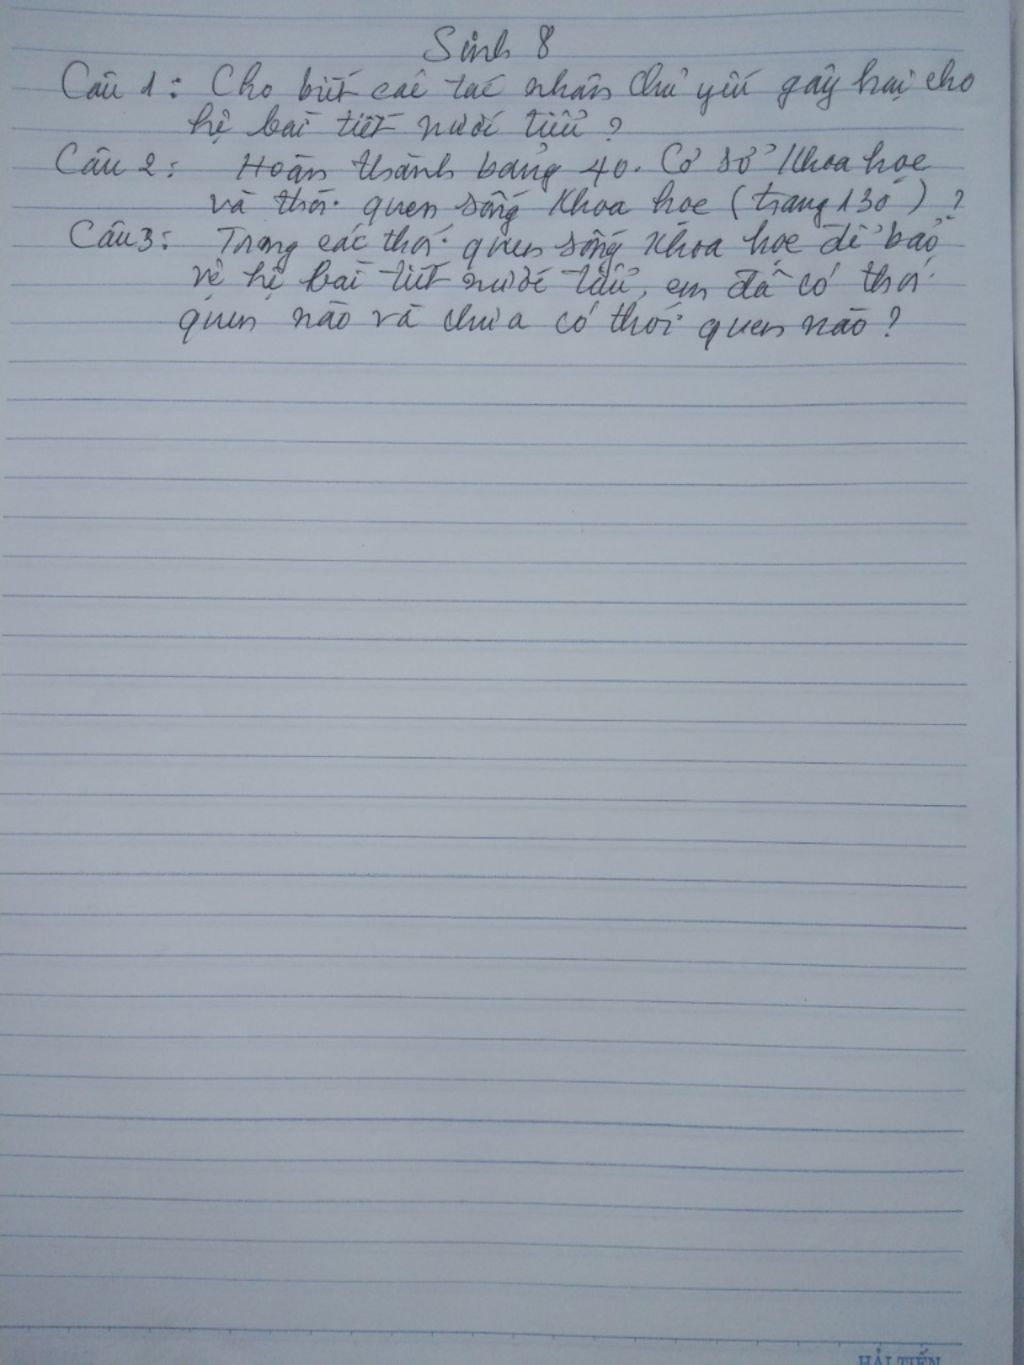 Sinh 8
Câu 1: Cho biết các tác nhân chủ yếu gây hại cho
hệ bài tiết nước tiểu ?
Câu 2: Hoàn thành bảng 40. Cơ sở khoa học
và thói quen sống khoa học (trang 130) ?
Câu 3: Trong các thói quen sống khoa học để bảo
vệ hệ bài tiết nước tiểu, em đã có thói
quen nào và chưa có thói quen nào ?
HẢI TIẾN